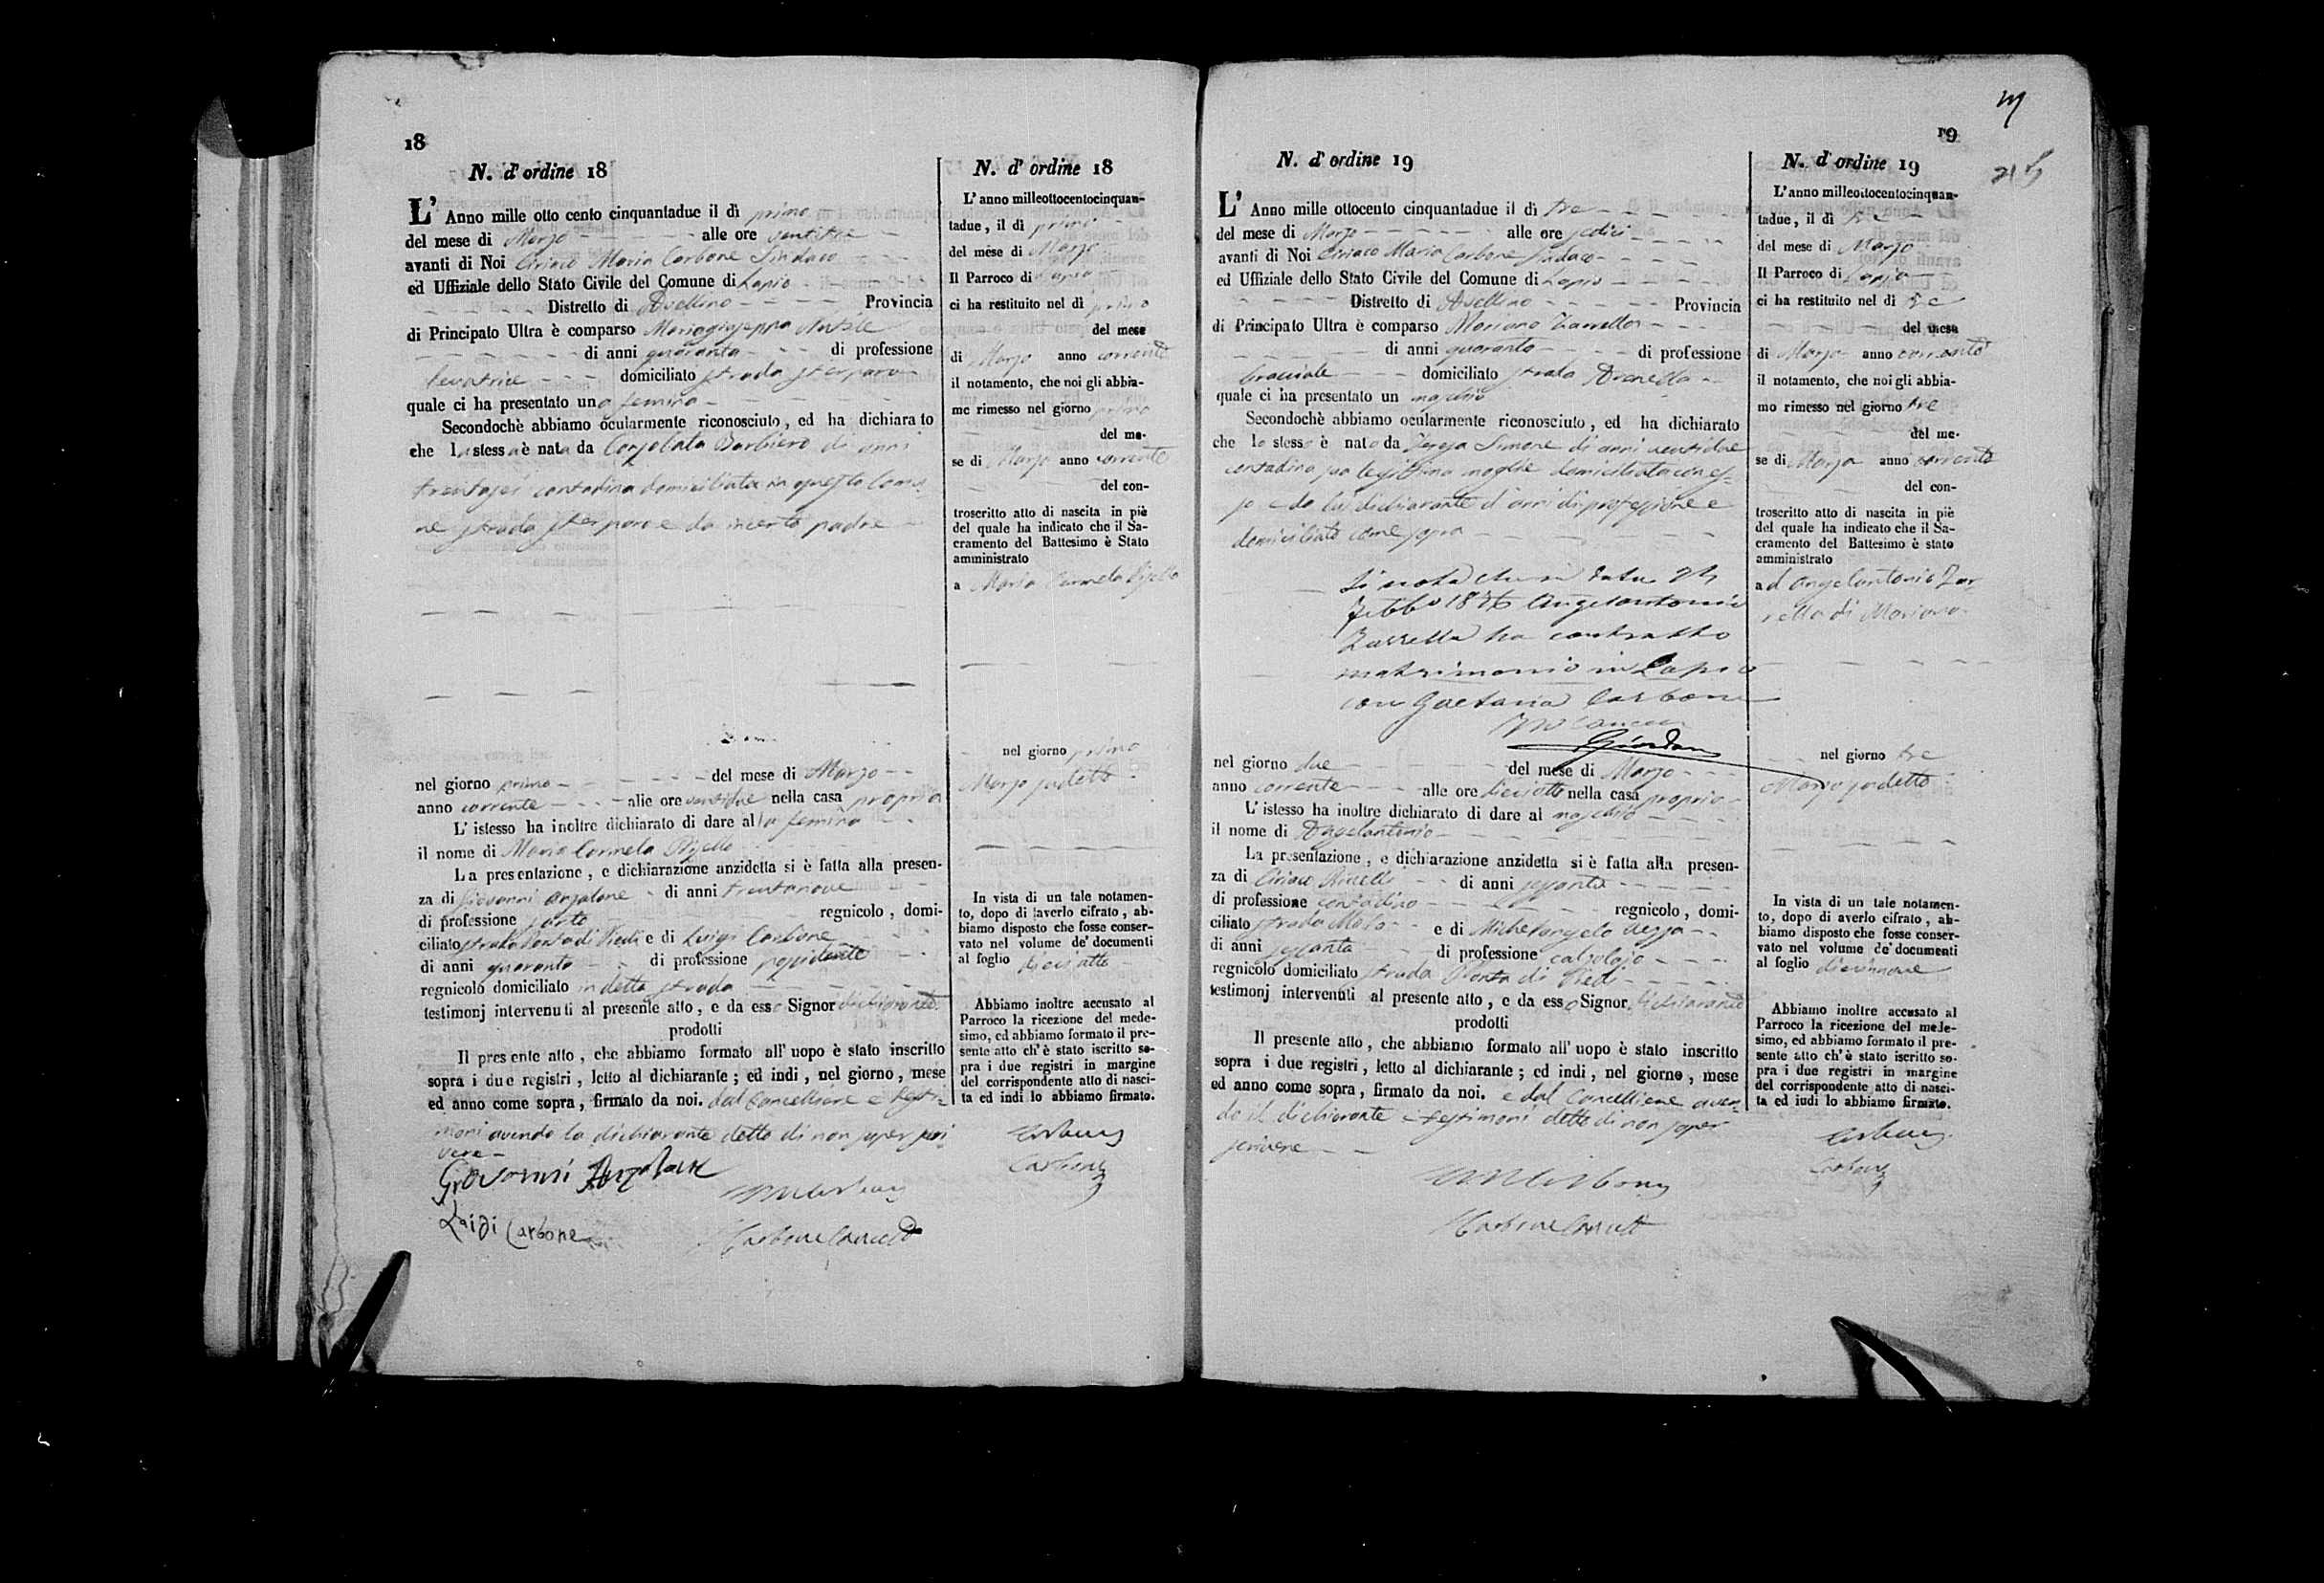 18
N. d' ordine 18
L' Anno mille otto cento cinquantadue il dì primo
del mese di Marzo alle ore ventitre
avanti di Noi Ciriaco Maria Carbone Sindaco
ed Uffiziale dello Stato Civile del Comune di Lapio
Distretto di Avellino Provincia
di Principato Ultra è comparso Mariagiuseppa
di anni quaranta di professione
levatrice domiciliato strada
quale ci ha presentato una femina
Secondochè abbiamo ocularmente riconosciuto, ed ha dichiarato
che la stessa è nata da Barbiero di anni
trentasei contadina domiciliata in questo Comu-
ne strada e da incerto padre
nel giorno primo del mese di Marzo
anno corrente alle ore ventidue nella casa propria
L' istesso ha inoltre dichiarato di dare alla femina
il nome di Maria Carmela
La presentazione, e dichiarazione anzidetta si è fatta alla presen-
za di Giovanni Anzalone di anni trentanove
di professione sarto regnicolo, domi-
ciliato strada Porta di Piedi e di Luigi Carbone
di anni quaranta di professione possidente
regnicolo domiciliato in detta strada
testimonj intervenuti al presente atto, e da esso Signor dichiarante
prodotti
Il presente atto, che abbiamo formato all' uopo è stato inscritto
sopra i due registri, letto al dichiarante; ed indi, nel giorno, mese
ed anno come sopra, firmato da noi. dal Cancelliere e testi-
moni avendo la dichiarante detto di non saper scri-
vere
Giovanni Anzalone
Luigi Carbone
Carbone
N. d' ordine 18
L' anno milleottocentocinquan-
tadue, il dì primo
del mese di Marzo
Il Parroco di Lapio
ci ha restituito nel dì primo
del mese
di Marzo anno corrente
il notamento, che noi gli abbia-
mo rimesso nel giorno primo
del me-
se di Marzo anno corrente
del con-
troscritto atto di nascita in piè
del quale ha indicato che il Sa-
cramento del Battesimo è Stato
amministrato
a Maria Carmela
nel giorno primo
Marzo sudetto
In vista di un tale notamen-
to, dopo di averlo cifrato, ab-
biamo disposto che fosse conser-
vato nel volume de' documenti
al foglio dieciotto
Abbiamo inoltre accusato al
Parroco la ricezione del mede-
simo, ed abbiamo formato il pre-
sente atto ch' è stato iscritto so-
pra i due registri in margine
del corrispondente atto di nasci-
ta ed indi lo abbiamo firmato.
Carbone
Carbone
19
N. d' ordine 19
L' Anno mille ottocento cinquantadue il dì tre
del mese di Marzo alle ore sedici
avanti di Noi Ciriaco Maria Carbone Sindaco
ed Uffiziale dello Stato Civile del Comune di Lapio
Distretto di Avellino Provincia
di Principato Ultra è comparso Mariano Zarrella
di anni quaranta di professione
bracciale domiciliato strada Arenella
quale ci ha presentato un maschio
Secondochè abbiamo ocularmente riconosciuto, ed ha dichiarato
che lo stesso è nato da Teresa Simone di anni ventidue
contadina sua legittima moglie domiciliata con es-
so e da lui dichiarante d'anni di professione e
domiciliato come sopra
Si nota che in data 24
Febb° 1876 Angelantonio
Zarrella ha contratto
matrimonio in Lapio
con Gaetana Carbone
Giordano
nel giorno due del mese di Marzo
anno corrente alle ore dieciotto nella casa propria
L' istesso ha inoltre dichiarato di dare al maschio
il nome di Angelantonio
La presentazione, e dichiarazione anzidetta si è fatta alla presen-
za di Ciriaco di anni sessanta
di professione contadino regnicolo, domi-
ciliato strada e di Michelangelo
di anni sessanta di professione calzolajo
regnicolo domiciliato strada Porta di Piedi
testimonj intervenuti al presente atto, e da esso Signor dichiarante
prodotti
Il presente atto, che abbiamo formato all' uopo è stato inscritto
sopra i due registri, letto al dichiarante; ed indi, nel giorno, mese
ed anno come sopra, firmato da noi. e dal Cancelliere aven-
do il dichiarante e testimoni detto di non saper
scrivere
Carbone
N. d' ordine 19
L' anno milleottocentocinquan-
tadue, il dì tre
del mese di Marzo
Il Parroco di Lapio
ci ha restituito nel dì tre
del mese
di Marzo anno corrente
il notamento, che noi gli abbia-
mo rimesso nel giorno tre
del me-
se di Marzo anno corrente
del con-
troscritto atto di nascita in piè
del quale ha indicato che il Sa-
cramento del Battesimo è stato
amministrato
ad Angelantonio Zar-
rella di Mariano
nel giorno tre
Marzo sudetto
In vista di un tale notamen-
to, dopo di averlo cifrato, ab-
biamo disposto che fosse conser-
vato nel volume de' documenti
al foglio diecinnove
Abbiamo inoltre accusato al
Parroco la ricezione del mede-
simo, ed abbiamo formato il pre-
sente atto ch' è stato iscritto so-
pra i due registri in margine
del corrispondente atto di nasci-
ta ed indi lo abbiamo firmato.
Carbone
Carbone